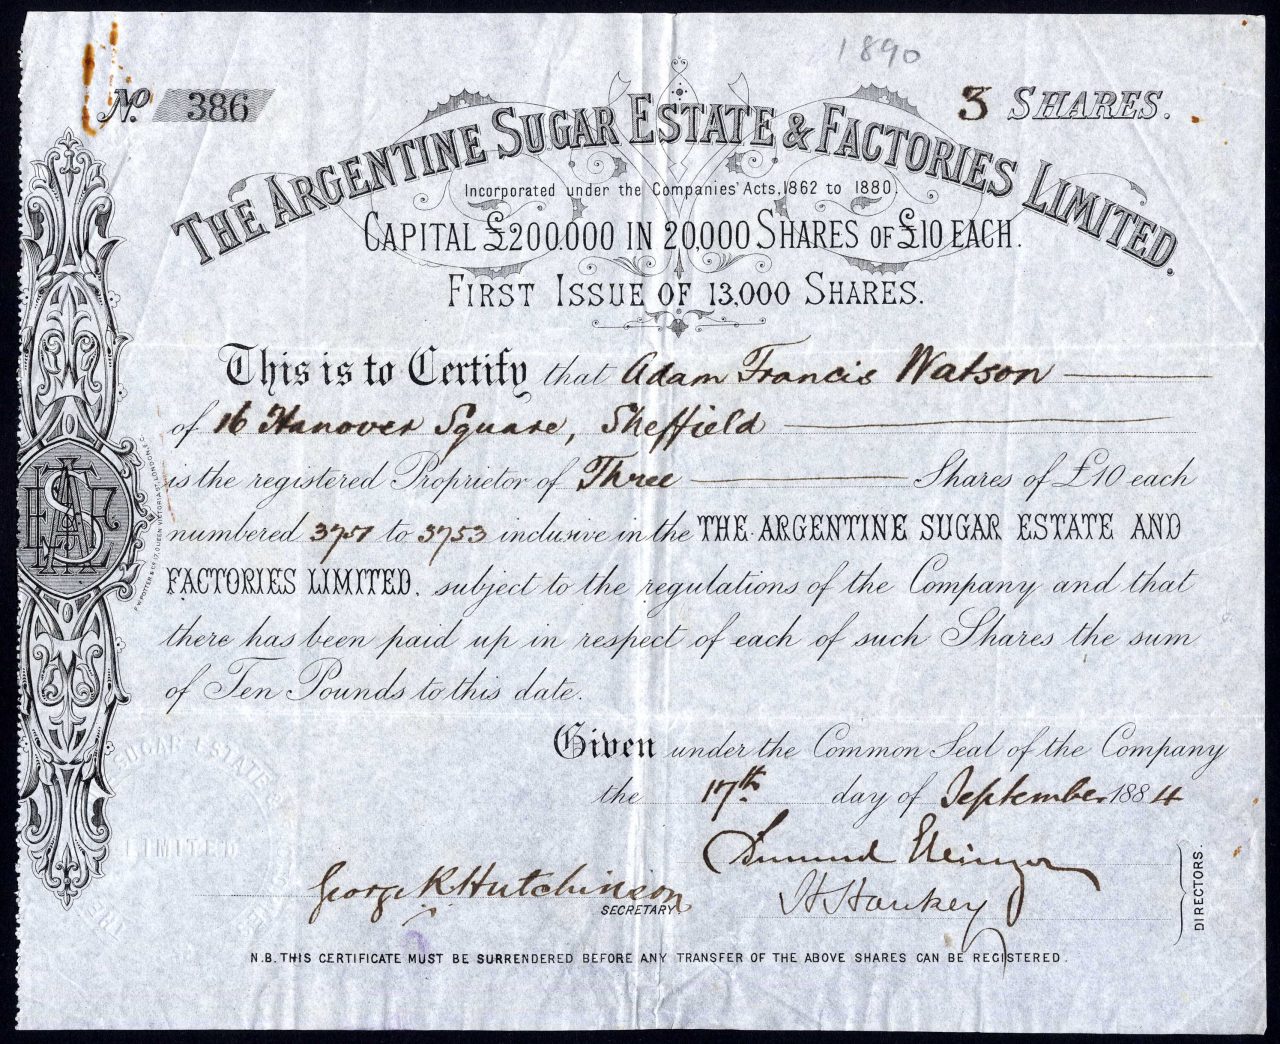 1890
No. 386
3 SHARES.
THE ARGENTINE SUGAR ESTATE & FACTORIES LIMITED.
Incorporated under the Companies' Acts, 1862 to 1880.
CAPITAL £200.000 IN 20,000 SHARES OF £10 EACH.
FIRST ISSUE OF 13,000 SHARES.
This is to Certify that Adam Francis Watson
of 16 Hanover Square, Sheffield
is the registered Proprietor of Three Shares of £10 each
numbered 3751 to 3753 inclusive in the THE ARGENTINE SUGAR ESTATE AND
FACTORIES LIMITED. subject to the regulations of the Company and that
there has been paid up in respect of each of such Shares the sum
of Ten Pounds to this date.
Given under the Common Seal of the Company
the 17th day of September 1884
George K Hutchinson
SECRETARY
H Hankey
DIRECTORS.
N.B. THIS CERTIFICATE MUST BE SURRENDERED BEFORE ANY TRANSFER OF THE ABOVE SHARES CAN BE REGISTERED.
SUGAR ESTATE
LIMITED